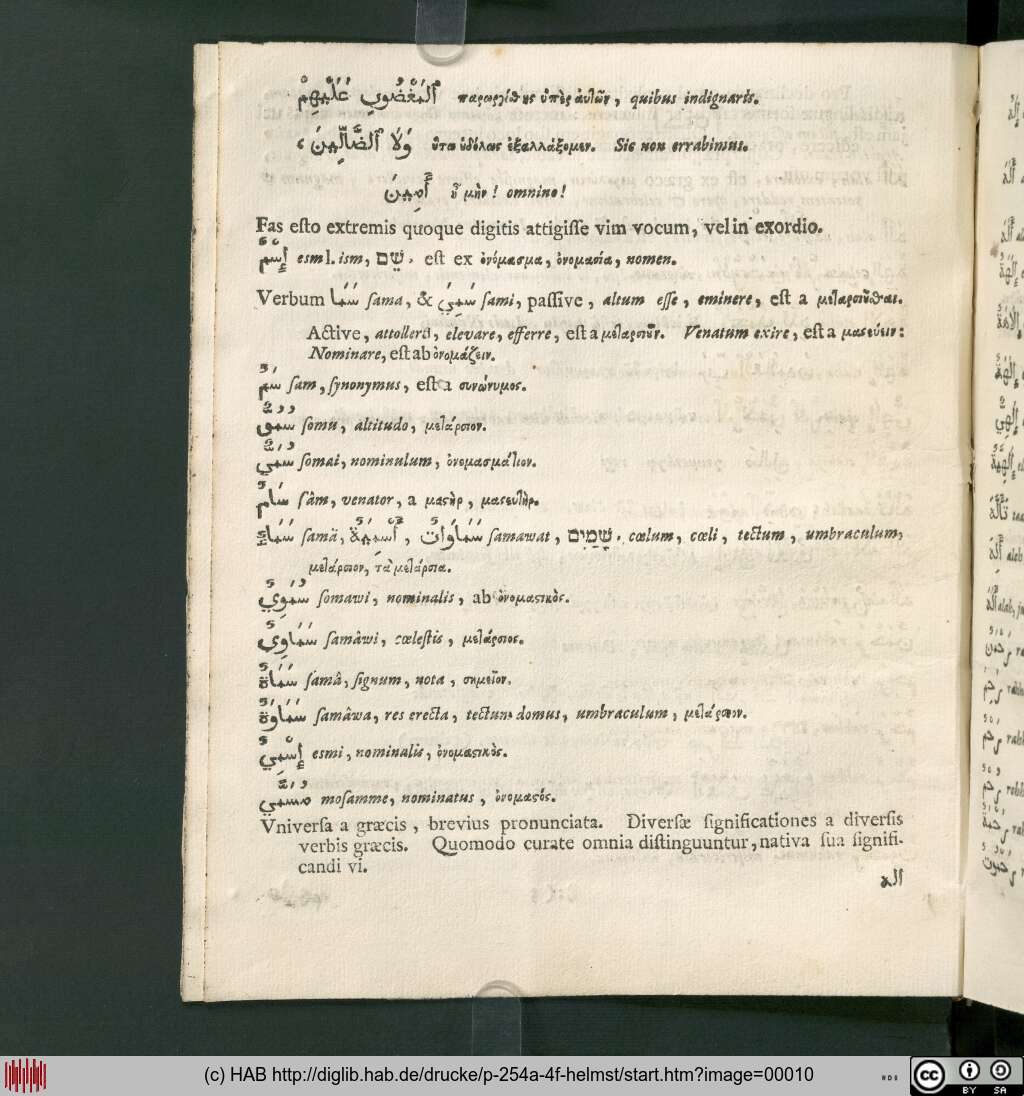 ٱلْمَغْضُوبِ عَلَيْهِمْ παροργίσθης ὑπὲρ ἀυτῶν, quibus indignaris.
وَلَا ٱلضَّالِّينَ ὅτω ὀδόλως ἐξαλλάξομεν. Sic non errabimus.
أَمِينَ ἦ μὴν! omnino!
Fas esto extremis quoque digitis attigisſe vim vocum, vel in exordio.
إِسْمٌ esm l. ism, שֵׁם, est ex ὀνόμασμα, ὀνομασία, nomen.
Verbum سَمَا sama, & سَمِيَ sami, passive, altum esse, eminere, est a μεταρσιοῦσθαι.
Active, attollere, elevare, efferre, est a μεταρσιοῦν. Venatum exire, est a μαστεύειν:
Nominare, est ab ὀνομάζειν.
سَمٌ sam, synonymus, est a συνώνυμος.
سُمُوٌّ somu, altitudo, μετάρσιον.
سُمَيٌّ somai, nominulum, ὀνομασμάτιον.
سَامٍ sâm, venator, a μαστὴρ, μαστευτὴρ.
سَمَاءٌ samâ, أَسْمِيَةٌ, سَمَاوَاتٌ samawat, שָׁמַיִם, cœlum, cœli, tectum, umbraculum,
μετάρσιον, τὰ μετάρσια.
سُمَوِيٌّ somawi, nominalis, ab ὀνομαστικὸς.
سَمَاوِيٌّ samâwi, cœlestis, μετάρσιος.
سَمَاةٌ samâ, signum, nota, σημεῖον.
سَمَاوَةٌ samâwa, res erecta, tectum domus, umbraculum, μετάρσιον.
إِسْمِيٌّ esmi, nominalis, ὀνομαστικὸς.
مُسَمًّى mosamme, nominatus, ὀνομαστός.
Vniversa a græcis, brevius pronunciata. Diversæ significationes a diversis
verbis græcis. Quomodo curate omnia distinguuntur, nativa sua signifi-
candi vi.
اله
(c) HAB http://diglib.hab.de/drucke/p-254a-4f-helmst/start.htm?image=00010
HDB
cc BY SA